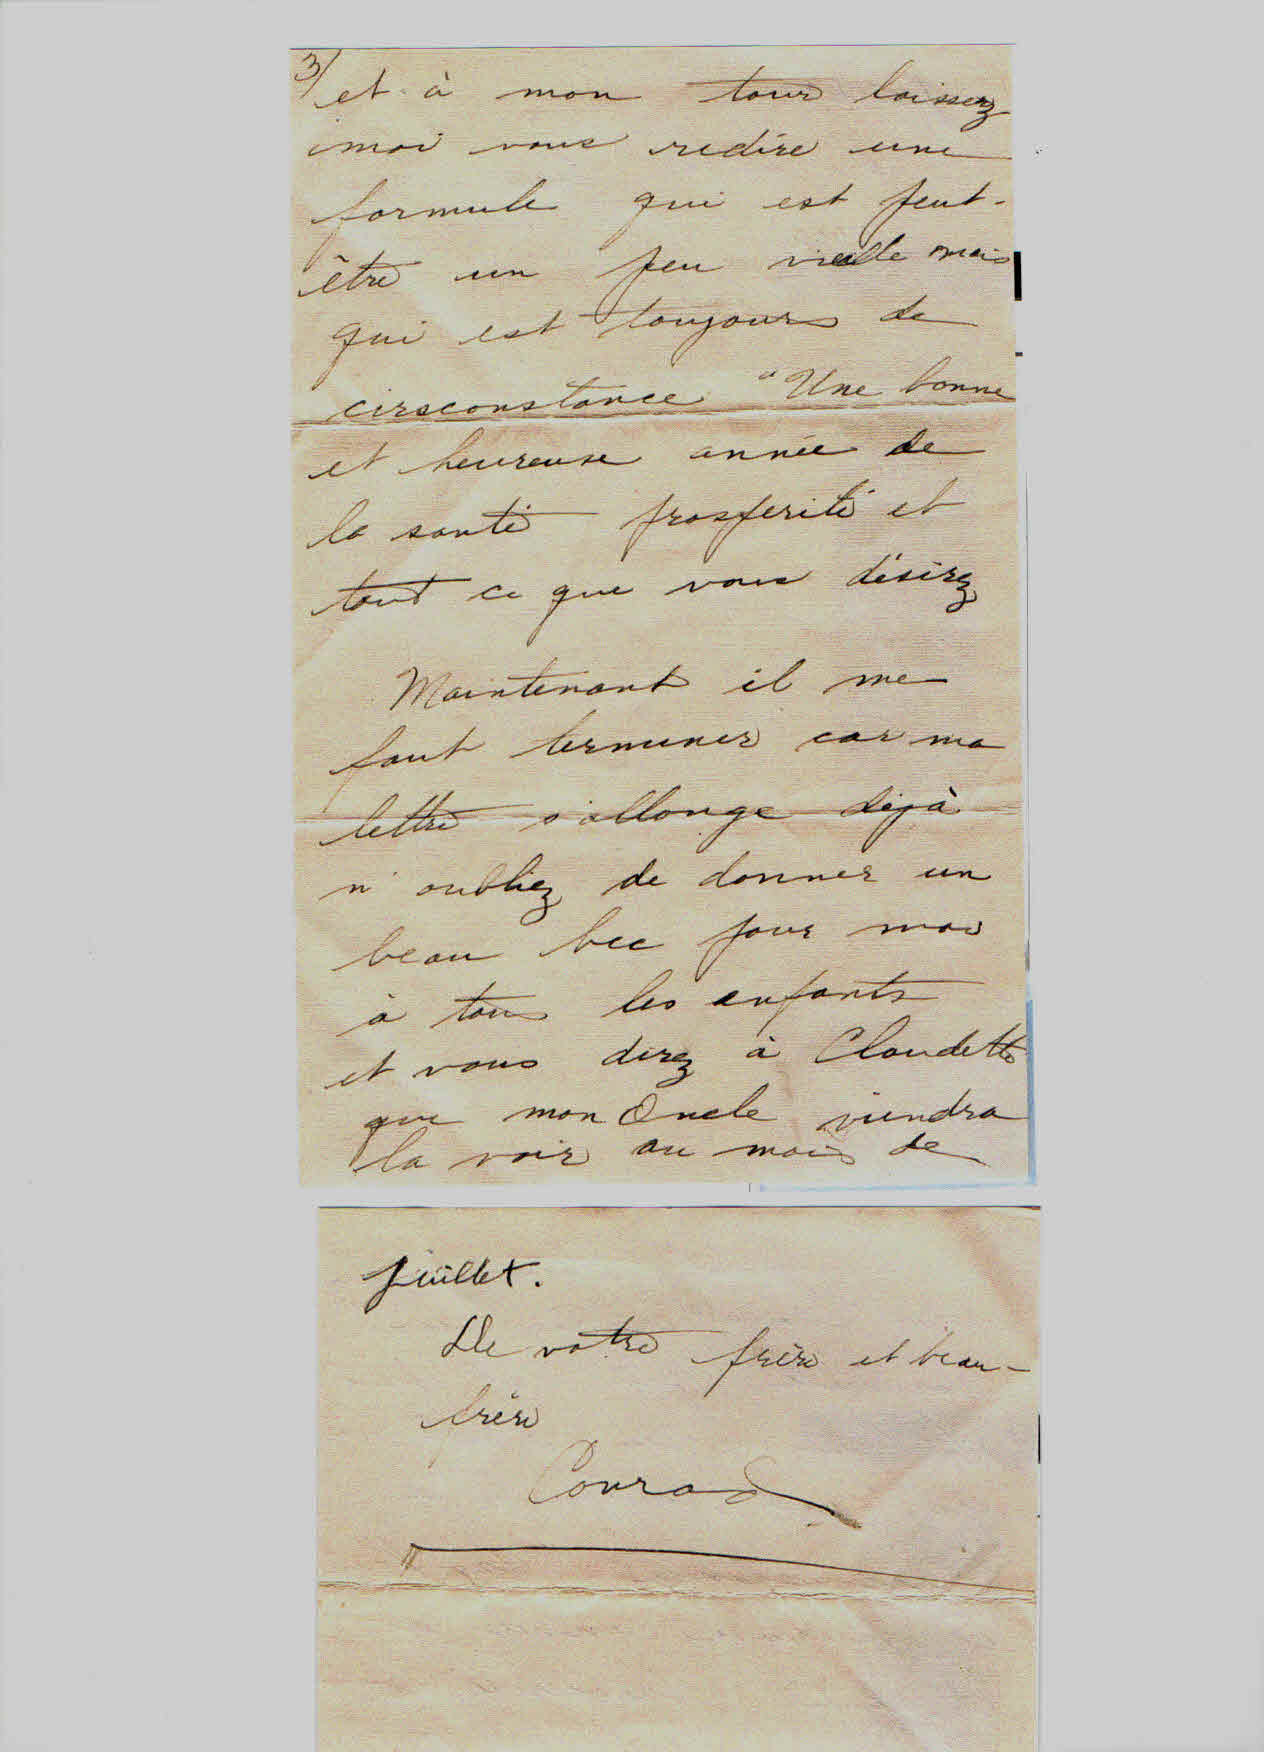 3/
et à mon tour laissez
moi vous redire une
formule qui est peut-
être un peu vieille mais
qui est toujours de
cirsconstance "Une bonne
et heureuse année de
la santé prosperité et
tout ce que vous désirez
Maintenant il me
faut terminer car ma
lettre s'allonge déjà
n'oubliez de donner un
beau bec pour moi
à tous les enfants
et vous direz à Claudette
que mon Oncle viendra
la voir au mois de
juillet.
De votre frère et beau-
frère
Conrad